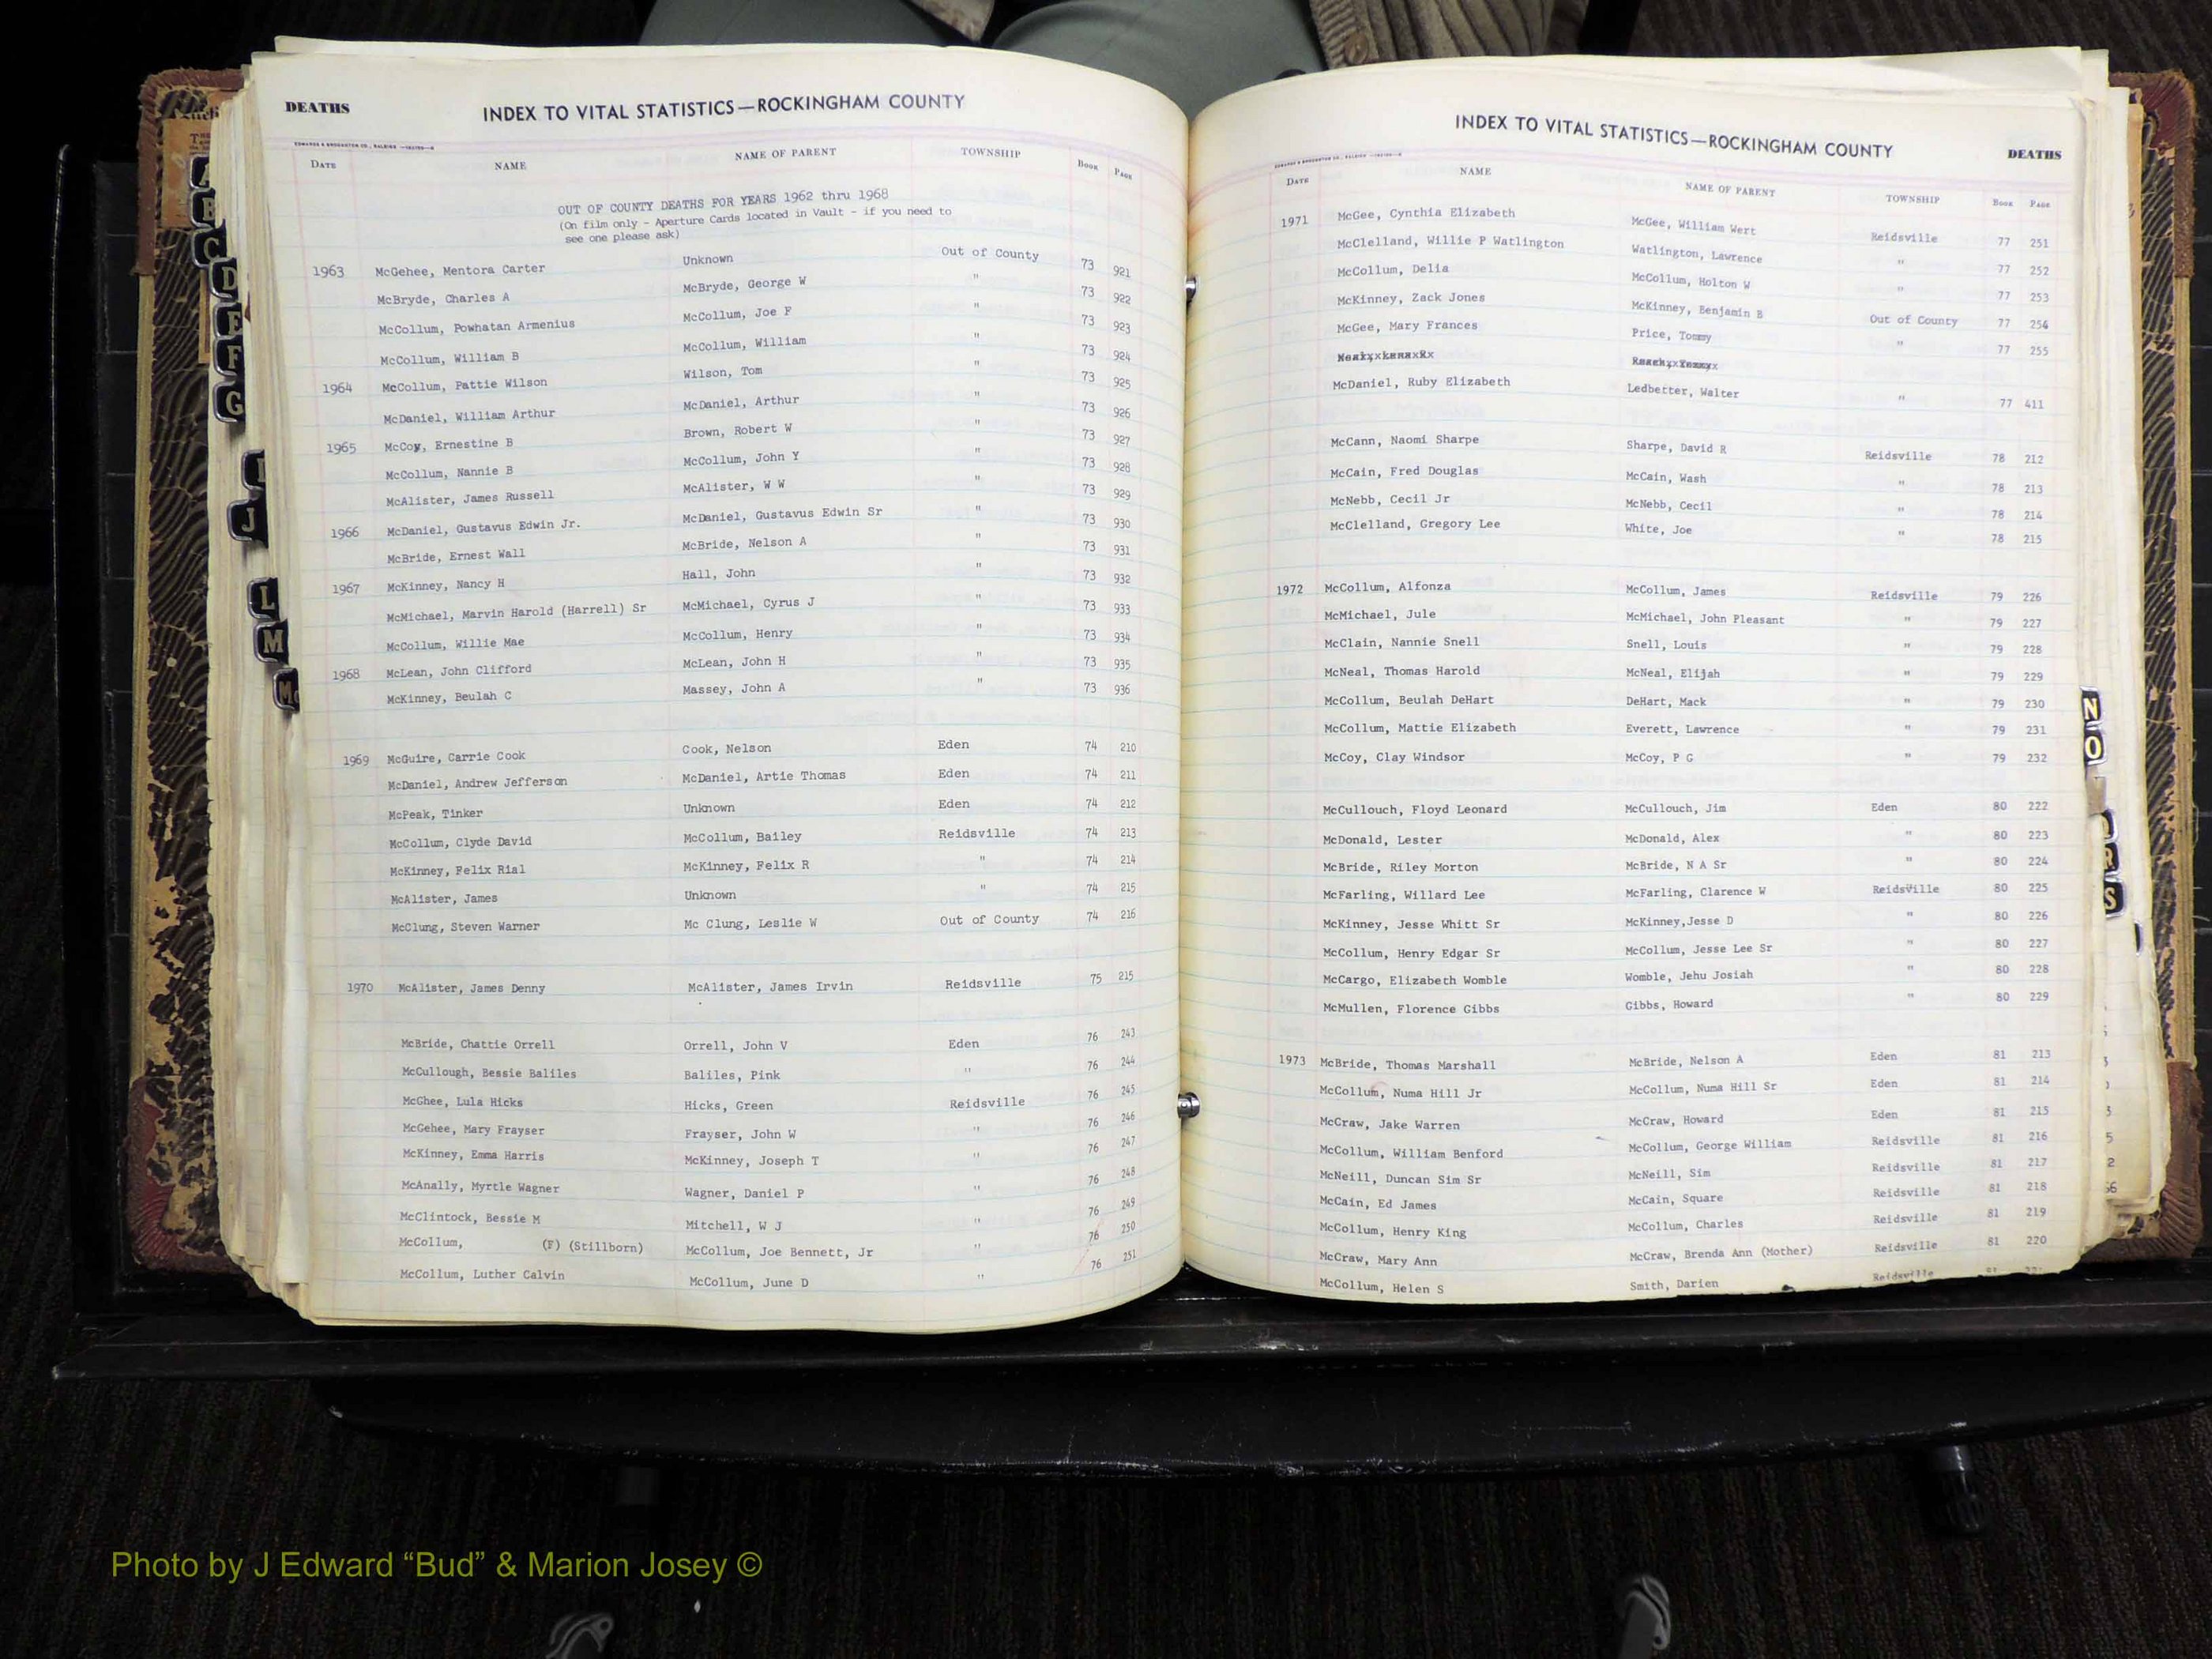 DEATHS
INDEX TO VITAL STATISTICS—ROCKINGHAM COUNTY
DATE NAME NAME OF PARENT TOWNSHIP BOOK PAGE
OUT OF COUNTY DEATHS FOR YEARS 1962 thru 1968
(On film only - Aperture Cards located in Vault - if you need to
see one please ask)
1963 McGehee, Mentora Carter Unknown Out of County 73 921
McBryde, Charles A McBryde, George W " 73 922
McCollum, Powhatan Armenius McCollum, Joe F " 73 923
McCollum, William B McCollum, William " 73 924
1964 McCollum, Pattie Wilson Wilson, Tom " 73 925
McDaniel, William Arthur McDaniel, Arthur " 73 926
1965 McCoy, Ernestine B Brown, Robert W " 73 927
McCollum, Nannie B McCollum, John Y " 73 928
McAlister, James Russell McAlister, W W " 73 929
1966 McDaniel, Gustavus Edwin Jr. McDaniel, Gustavus Edwin Sr " 73 930
McBride, Ernest Wall McBride, Nelson A " 73 931
1967 McKinney, Nancy H Hall, John " 73 932
McMichael, Marvin Harold (Harrell) Sr McMichael, Cyrus J " 73 933
McCollum, Willie Mae McCollum, Henry " 73 934
1968 McLean, John Clifford McLean, John H " 73 935
McKinney, Beulah C Massey, John A " 73 936
1969 McGuire, Carrie Cook Cook, Nelson Eden 74 210
McDaniel, Andrew Jefferson McDaniel, Artie Thomas Eden 74 211
McPeak, Tinker Unknown Eden 74 212
McCollum, Clyde David McCollum, Bailey Reidsville 74 213
McKinney, Felix Rial McKinney, Felix R " 74 214
McAlister, James Unknown " 74 215
McClung, Steven Warner Mc Clung, Leslie W Out of County 74 216
1970 McAlister, James Denny McAlister, James Irvin Reidsville 75 215
McBride, Chattie Orrell Orrell, John V Eden 76 243
McCullough, Bessie Baliles Baliles, Pink " 76 244
McGhee, Lula Hicks Hicks, Green Reidsville 76 245
McGehee, Mary Frayser Frayser, John W " 76 246
McKinney, Emma Harris McKinney, Joseph T " 76 247
McAnally, Myrtle Wagner Wagner, Daniel P " 76 248
McClintock, Bessie M Mitchell, W J " 76 249
McCollum, (F) (Stillborn) McCollum, Joe Bennett, Jr " 76 250
McCollum, Luther Calvin McCollum, June D " 76 251
INDEX TO VITAL STATISTICS—ROCKINGHAM COUNTY
DEATHS
DATE NAME NAME OF PARENT TOWNSHIP BOOK PAGE
1971 McGee, Cynthia Elizabeth McGee, William Wert Reidsville 77 251
McClelland, Willie P Watlington Watlington, Lawrence " 77 252
McCollum, Delia McCollum, Holton W " 77 253
McKinney, Zack Jones McKinney, Benjamin B Out of County 77 254
McGee, Mary Frances Price, Tommy " 77 255
McDaniel, Ruby Elizabeth Ledbetter, Walter " 77 411
McCann, Naomi Sharpe Sharpe, David R Reidsville 78 212
McCain, Fred Douglas McCain, Wash " 78 213
McNebb, Cecil Jr McNebb, Cecil " 78 214
McClelland, Gregory Lee White, Joe " 78 215
1972 McCollum, Alfonza McCollum, James Reidsville 79 226
McMichael, Jule McMichael, John Pleasant " 79 227
McClain, Nannie Snell Snell, Louis " 79 228
McNeal, Thomas Harold McNeal, Elijah " 79 229
McCollum, Beulah DeHart DeHart, Mack " 79 230
McCollum, Mattie Elizabeth Everett, Lawrence " 79 231
McCoy, Clay Windsor McCoy, P G " 79 232
McCullouch, Floyd Leonard McCullouch, Jim Eden 80 222
McDonald, Lester McDonald, Alex " 80 223
McBride, Riley Morton McBride, N A Sr " 80 224
McFarling, Willard Lee McFarling, Clarence W Reidsville 80 225
McKinney, Jesse Whitt Sr McKinney,Jesse D " 80 226
McCollum, Henry Edgar Sr McCollum, Jesse Lee Sr " 80 227
McCargo, Elizabeth Womble Womble, Jehu Josiah " 80 228
McMullen, Florence Gibbs Gibbs, Howard " 80 229
1973 McBride, Thomas Marshall McBride, Nelson A Eden 81 213
McCollum, Numa Hill Jr McCollum, Numa Hill Sr Eden 81 214
McCraw, Jake Warren McCraw, Howard Eden 81 215
McCollum, William Benford McCollum, George William Reidsville 81 216
McNeill, Duncan Sim Sr McNeill, Sim Reidsville 81 217
McCain, Ed James McCain, Square Reidsville 81 218
McCollum, Henry King McCollum, Charles Reidsville 81 219
McCraw, Mary Ann McCraw, Brenda Ann (Mother) Reidsville 81 220
McCollum, Helen S Smith, Darien Reidsville
B
C
D
E
F
G
I
J
L
M
N
O
R
S
Photo by J Edward “Bud” & Marion Josey ©